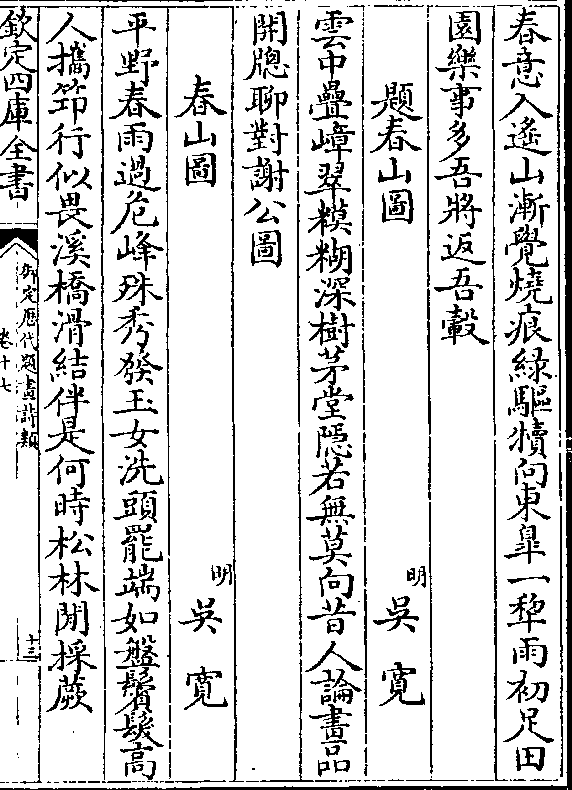 春意入遙山漸覺燒痕綠驅犢向東臯一犂雨初足田
園樂事多吾將返吾轂
題春山圖 明 吳寛
雲中疊嶂翠糢糊深樹茅堂隱若無莫向昔人論畫品
開牕聊對謝公圖
春山圖 明 吳寛
平野春雨過危峰殊秀發玉女洗頭罷端如盤鬢髮高
人攜筇行似畏溪橋滑結伴是何時松林閒採蕨
欽定四庫全書
御定歷代題畫詩類
卷十七
十三